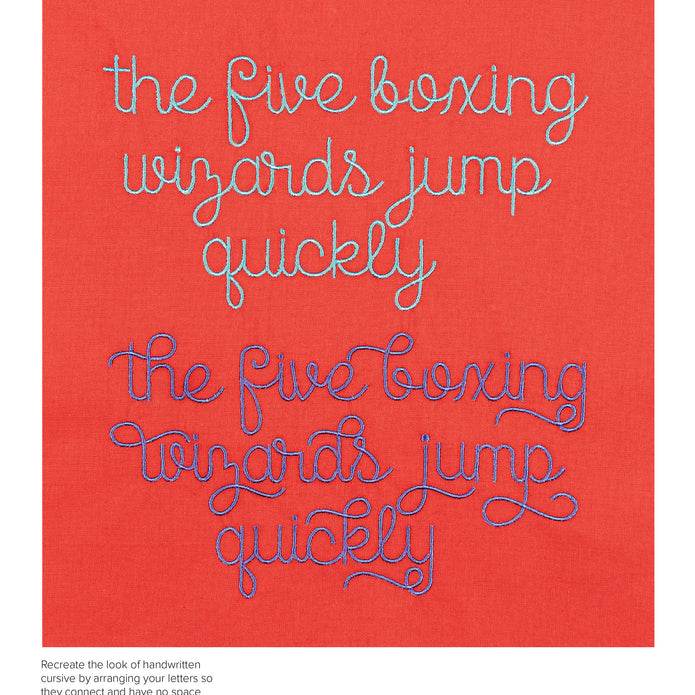 the five boxing
wizards jump
quickly
the five boxing
wizards jump
quickly
Recreate the look of handwritten
cursive by arranging your letters so
they connect and have no space